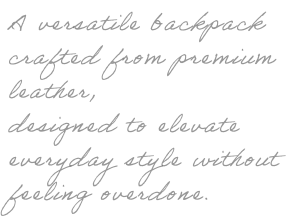 A versatile backpack
crafted from premium
leather,
designed to elevate
everyday style without
feeling overdone.